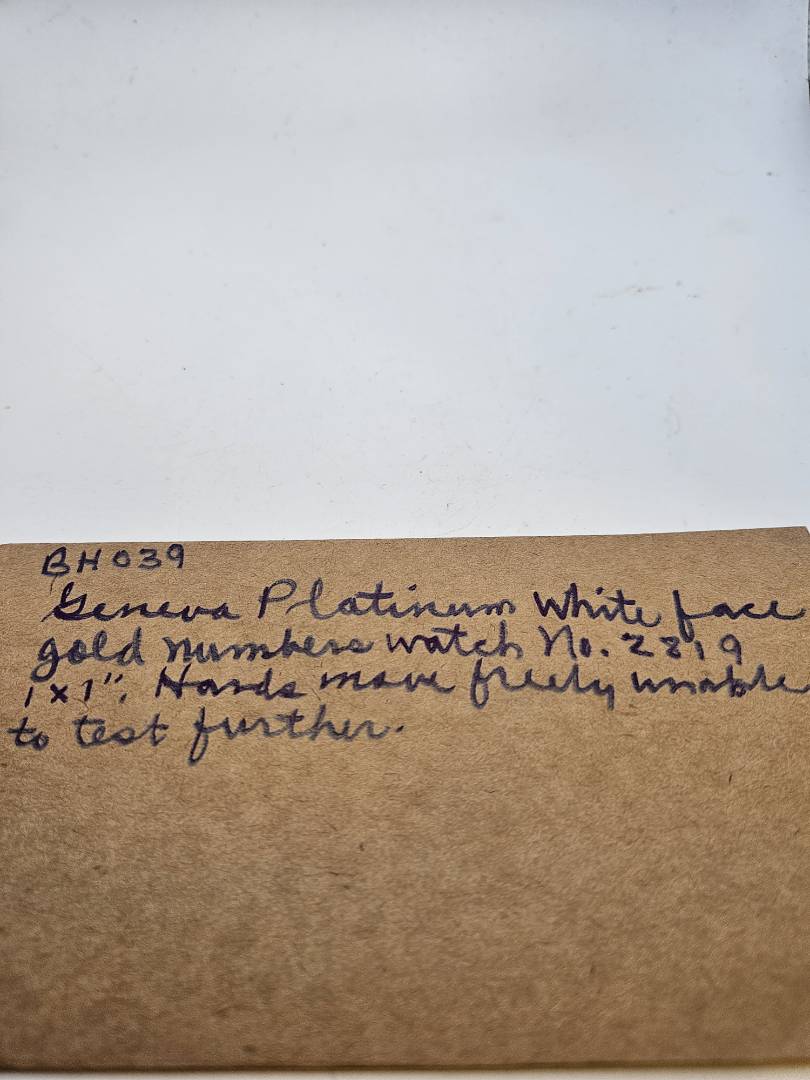 BH039
Geneva Platinum White face
gold numbers watch No. 2819
1 x 1". Hands move freely unable
to test further.